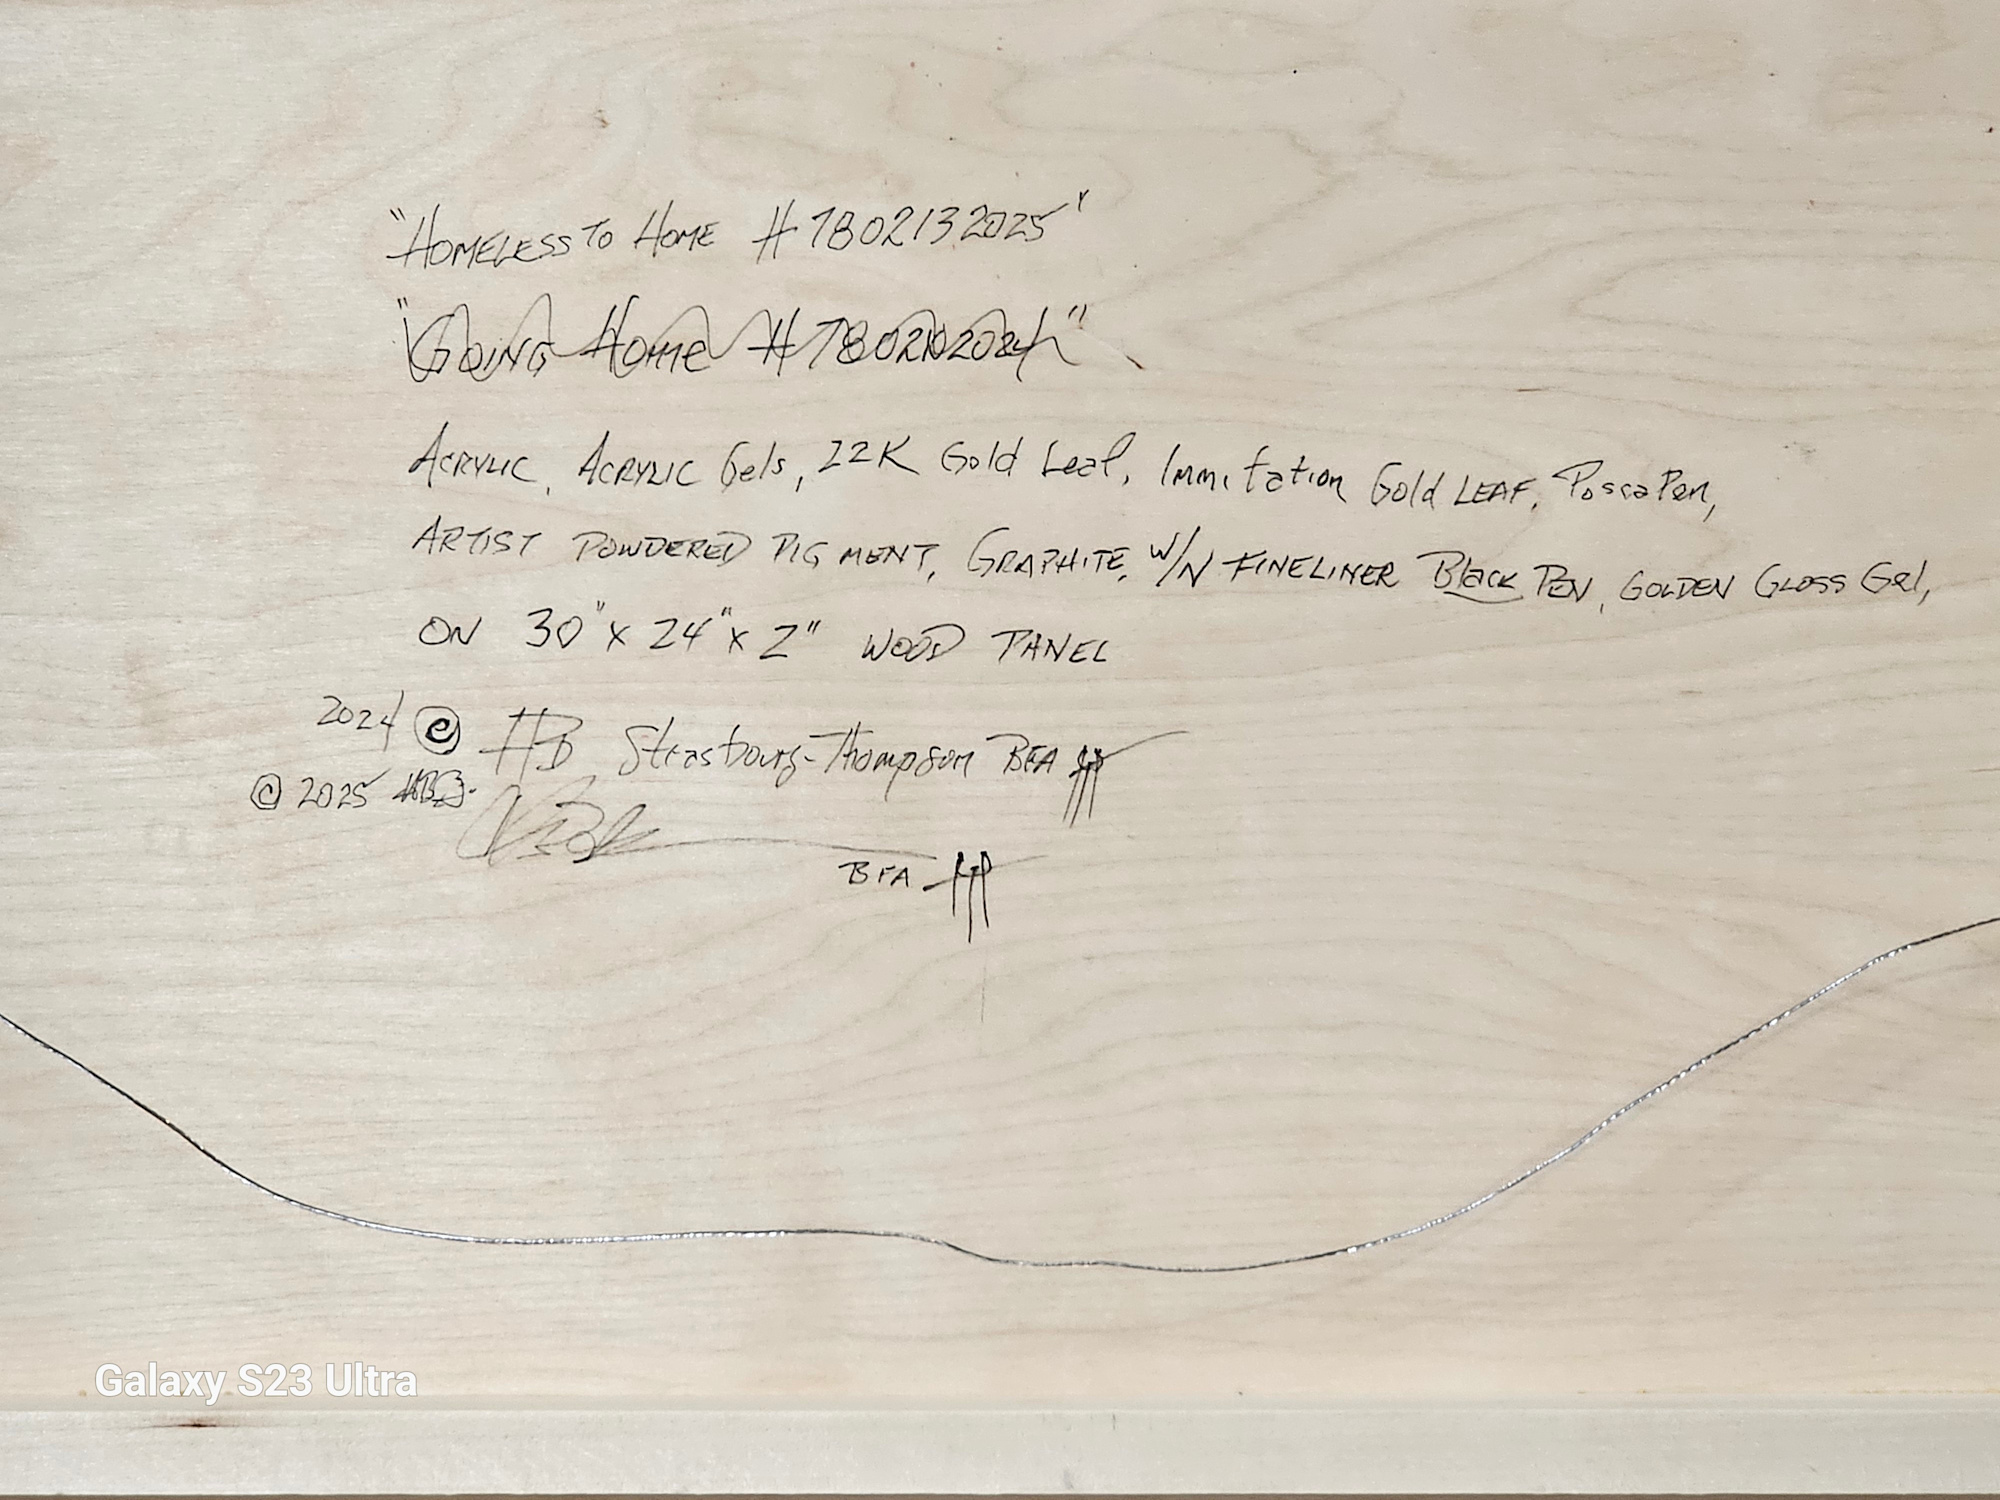 "Homeless to Home # 7802132025"
"Going Home # 7802102024"
Acrylic, Acrylic Gels, 22K Gold Leaf, Immitation Gold Leaf, Posca Pen,
Artist Powdered Pigment, Graphite, W/N Fineliner Black Pen, Golden Gloss Gel,
on 30" x 24" x 2" Wood Panel
2024 © HB Strasbourg-Thompson BFA
© 2025 HB
BFA
Galaxy S23 Ultra